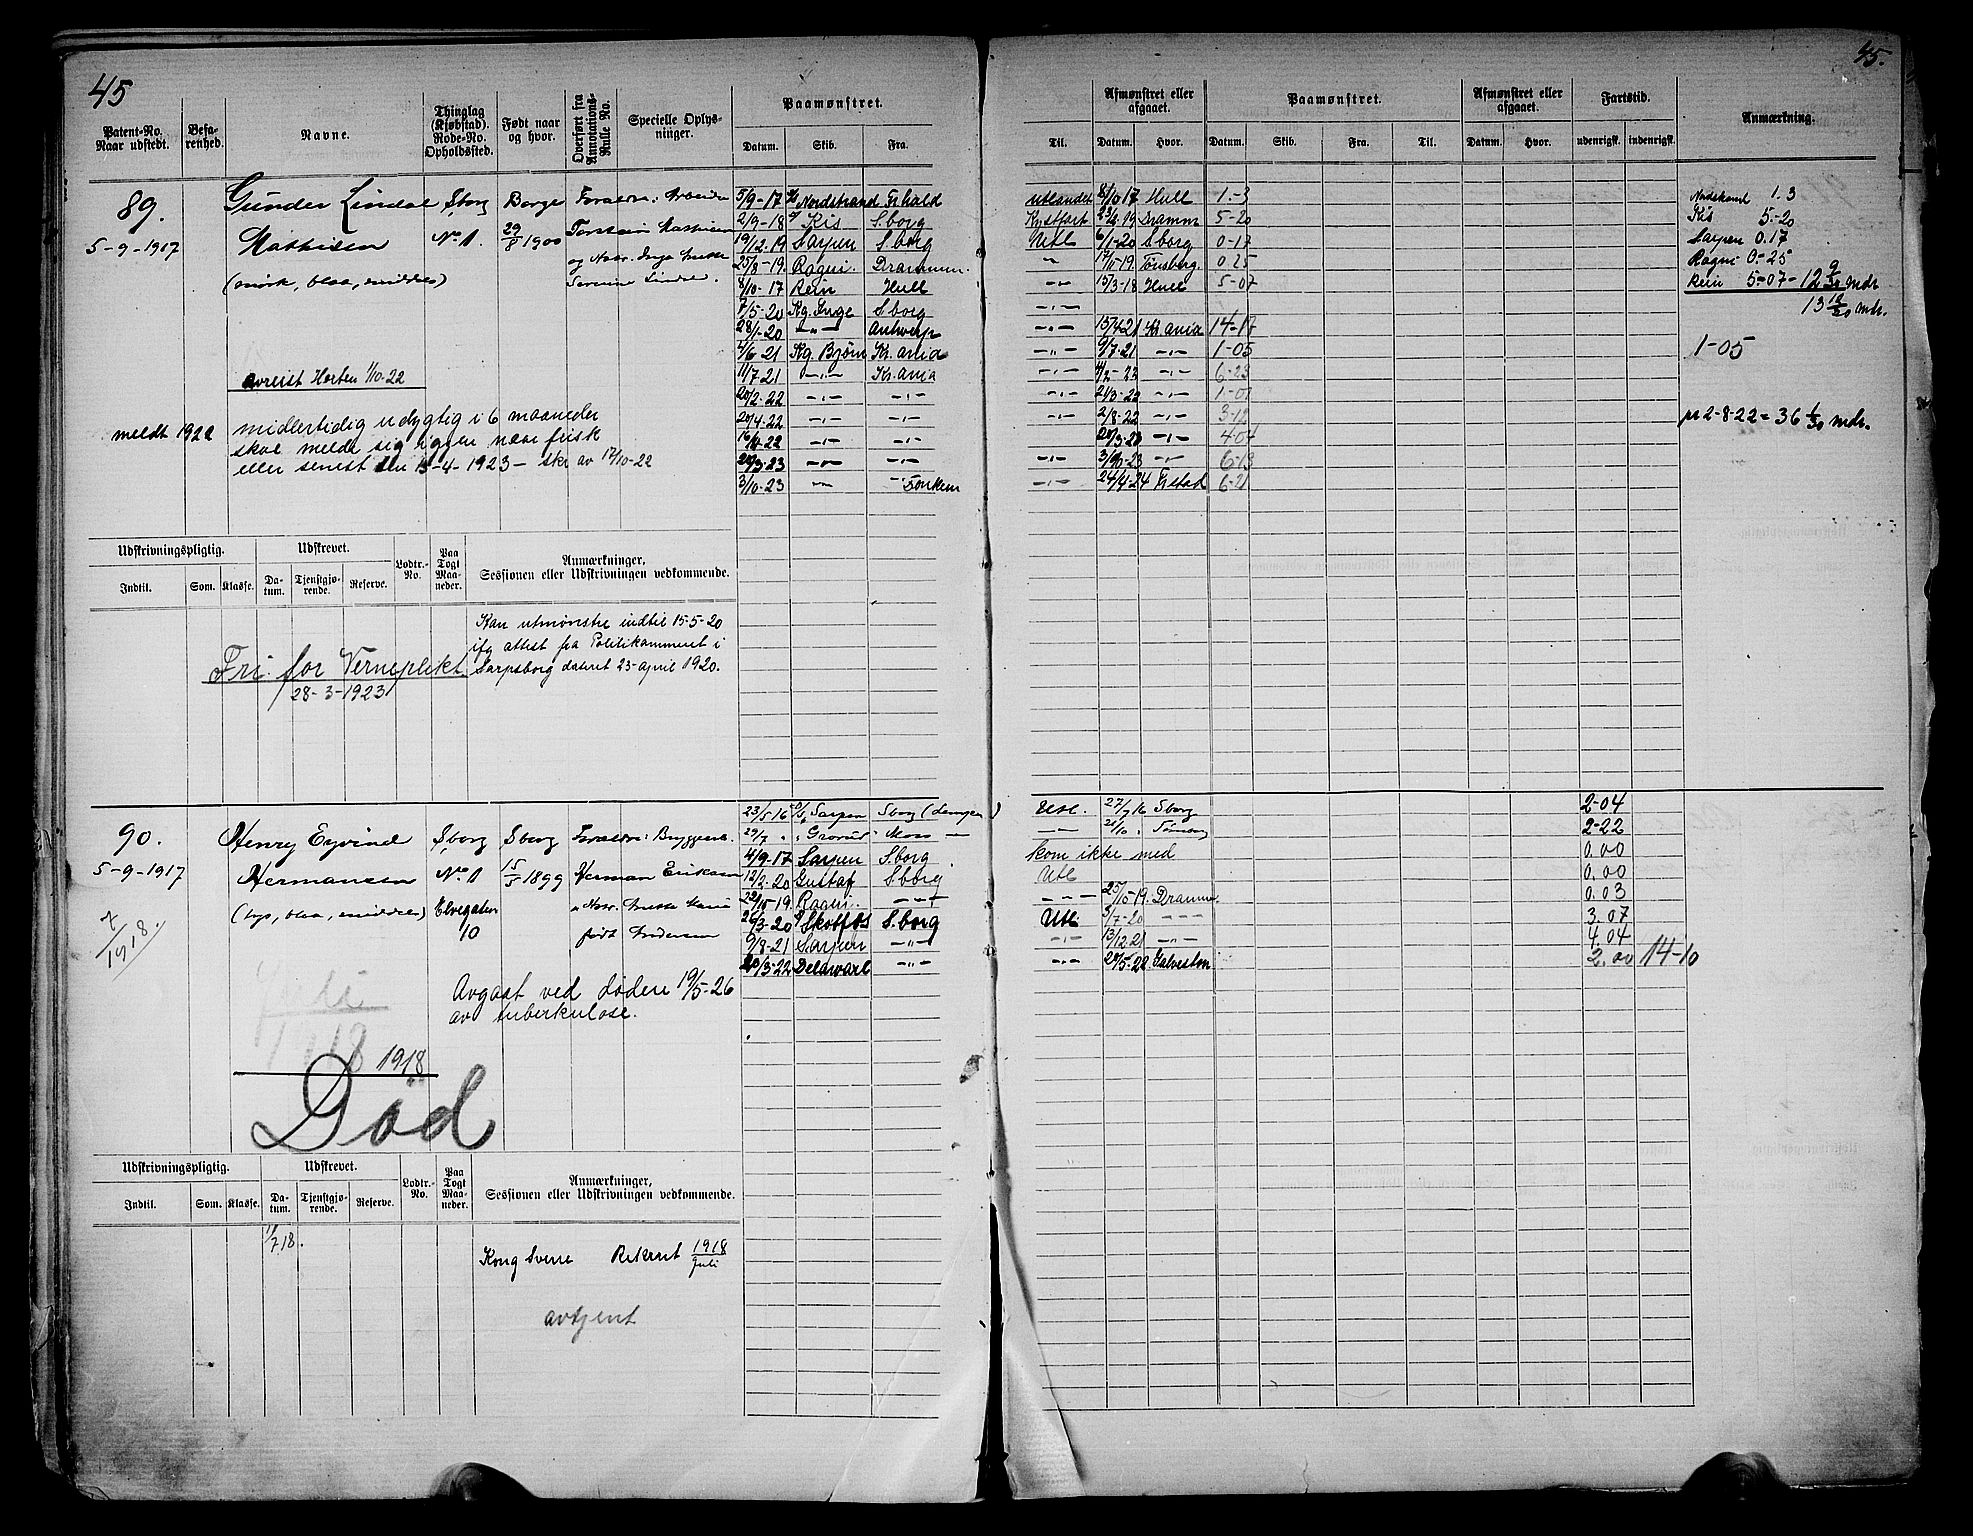 45
45.
Patent-No. Naar udstedt.
Befarenhed.
Navne.
Thinglag (Kjøbstad). Rode-No. Opholdssted.
Født naar og hvor.
Overført fra Annotations-Rulle No.
Specielle Oplysninger.
Paamønstret.
Datum. Skib. Fra.
Til.
Afmønstret eller afgaaet.
Datum. Hvor.
Paamønstret.
Datum. Skib. Fra. Til.
Afmønstret eller afgaaet.
Datum. Hvor.
Fartstid.
udenrigsk. indenrigsk.
Anmærkning.
89.
5-9-1917
Gunder Lindal
Mathisen
(mørk, blaa, middels)
S.borg
No 1.
Borge
29/8 1900
Forældre: Arbeider
Mathisen
5/9-17 Nordstrand Fr.hald utlandet 8/10 17 Hull 1.-3
2/9-18 Kis S.borg Kystfart Dramm 5-20
19/12.19 Sarpen S.borg Utl 6/1-20 S.borg 0-17
25/8-19. Ragni. Drammen. 17/11-19. Tønsberg. 0.25
8/10-17 Rein Hull -"- 15/3-18 Hull 5-07
7/5-20 Kg. Inge S.borg
28/1-20 -"- Antwerp -"- 13/4 21 Kr.ania 14-17
4/6 21 Kg. Bjørn Kr.ania -"- 9/7-21 -"- 1-05
11/7 21 -"- Kr.ania -"- 4/2-22 -"- 6-23
20/2-22 -"- -"- -"- 21/3-22 -"- 1-01
20/4-22 -"- -"- -"- 2/8-22 -"- 3-12
16/10-22 -"- -"- 20/3-23 -"- 4-04
20/3-23 -"- -"- -"- 3/10-23 -"- 6-13
3/10-23 -"- -"- 24/4-24 Fr.stad 6-21
Nordstrand 1.3
Kis 5-20
Sarpen 0.17
Ragni 0-25
Rein 5-07-12 9/30 mdr
13 mdr.
1-05
pr 2-8-22 = 36 1/30 mdr.
avreist Horten 1/10-22
meldt 1922
midlertidig udygtig i 6 maaneder
skal melde sig igjen naar frisk
eller senest den 15-4-1923 - skr av 17/10-22
Udskrivningspligtig.
Indtil. Som. Klasse.
Udskrevet.
Datum. Tjenstgjørende. Reserve.
Lodtr.-No.
Paa Togt Maaneder.
Anmærkninger, Sessionen eller Udskrivningen vedkommende.
Fri for Verneplikt
28-3-1923
Kan utmønstre indtil 15-5-20
ifg attest fra Politikammeret i
Sarpsborg dateret 23-april 1920.
90.
5-9-1917
7/1918.
Henry Eyvind
Hermansen
(lys, blaa, middels)
S.borg
No 1
Elvegaten
10
S.borg
15/5 1899
Forældre: Bryggearb.
Herman Eriksen
født Andersen
23/5 16 Sarpen S.borg Utl. 27/7 16 S.borg 2-04
29/7 Moss -"- Tønsberg 2-22
4/9-17 Sarpen S.borg kom ikke med 0.00
12/2-20 Gustaf S.borg Utl 0.00
22/10-19. Ragni. -"- -"- 25/10-19. Drammen. 0.03
26/3-20 Skotfos S.borg Utl. 3/7-20 -"- 3.07
9/8-21 Sarpen -"- -"- 13/12 21 -"- 4.04
20/3-22 Delaware -"- -"- 20/5-22 Galveston 2.00 14-10
Avgaat ved døden 19/5-26
av tuberkulose.
juli
1918
1918
Død
Udskrivningspligtig.
Indtil. Som. Klasse.
Udskrevet.
Datum. Tjenstgjørende. Reserve.
Lodtr.-No.
Paa Togt Maaneder.
Anmærkninger, Sessionen eller Udskrivningen vedkommende.
1/7 18.
Kong Sverre Rekrut 1918/Juli
avtjent